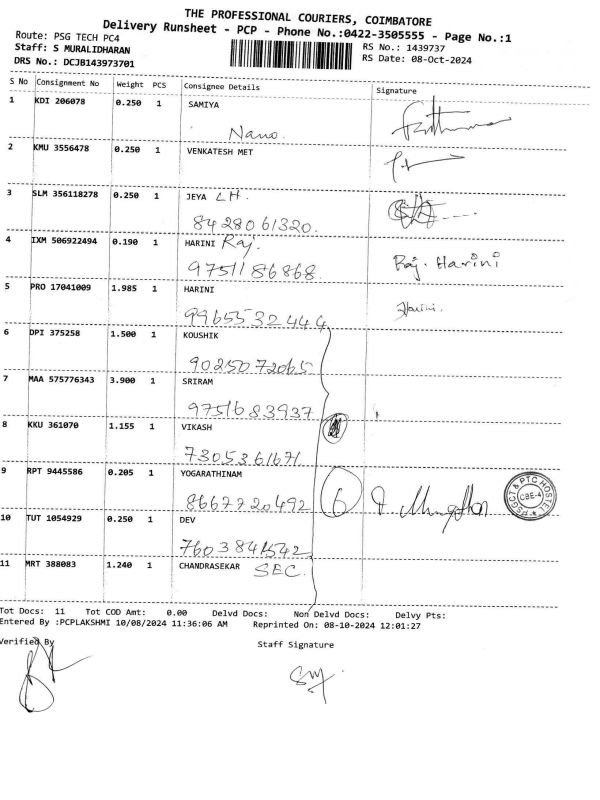 THE PROFESSIONAL COURIERS, COIMBATORE
Delivery Runsheet - PCP - Phone No.:0422-3505555 - Page No.:1
Route: PSG TECH PC4
Staff: S MURALIDHARAN
DRS No.: DCJB143973701
RS No.: 1439737
RS Date: 08-Oct-2024
S No Consignment No Weight PCS Consignee Details Signature
1 KDI 206078 0.250 1 SAMIYA
Nano.
2 KMU 3556478 0.250 1 VENKATESH MET
3 SLM 356118278 0.250 1 JEYA LH.
8428061320.
4 IXM 506922494 0.190 1 HARINI Raj.
9751186868. Raj. Harini
5 PRO 17041009 1.985 1 HARINI Harini.
9965532444
6 DPI 375258 1.500 1 KOUSHIK
9025072065
7 MAA 575776343 3.900 1 SRIRAM
9751683937
8 KKU 361070 1.155 1 VIKASH
7305361671
9 RPT 9445586 0.205 1 YOGARATHINAM
8667720492 6
PSGCT & PTC HOSTEL CBE-4
10 TUT 1054929 0.250 1 DEV
7603841542
11 MRT 388083 1.240 1 CHANDRASEKAR SEC.
Tot Docs: 11 Tot COD Amt: 0.00 Delvd Docs: Non Delvd Docs: Delvy Pts:
Entered By :PCPLAKSHMI 10/08/2024 11:36:06 AM Reprinted On: 08-10-2024 12:01:27
Verified By Staff Signature